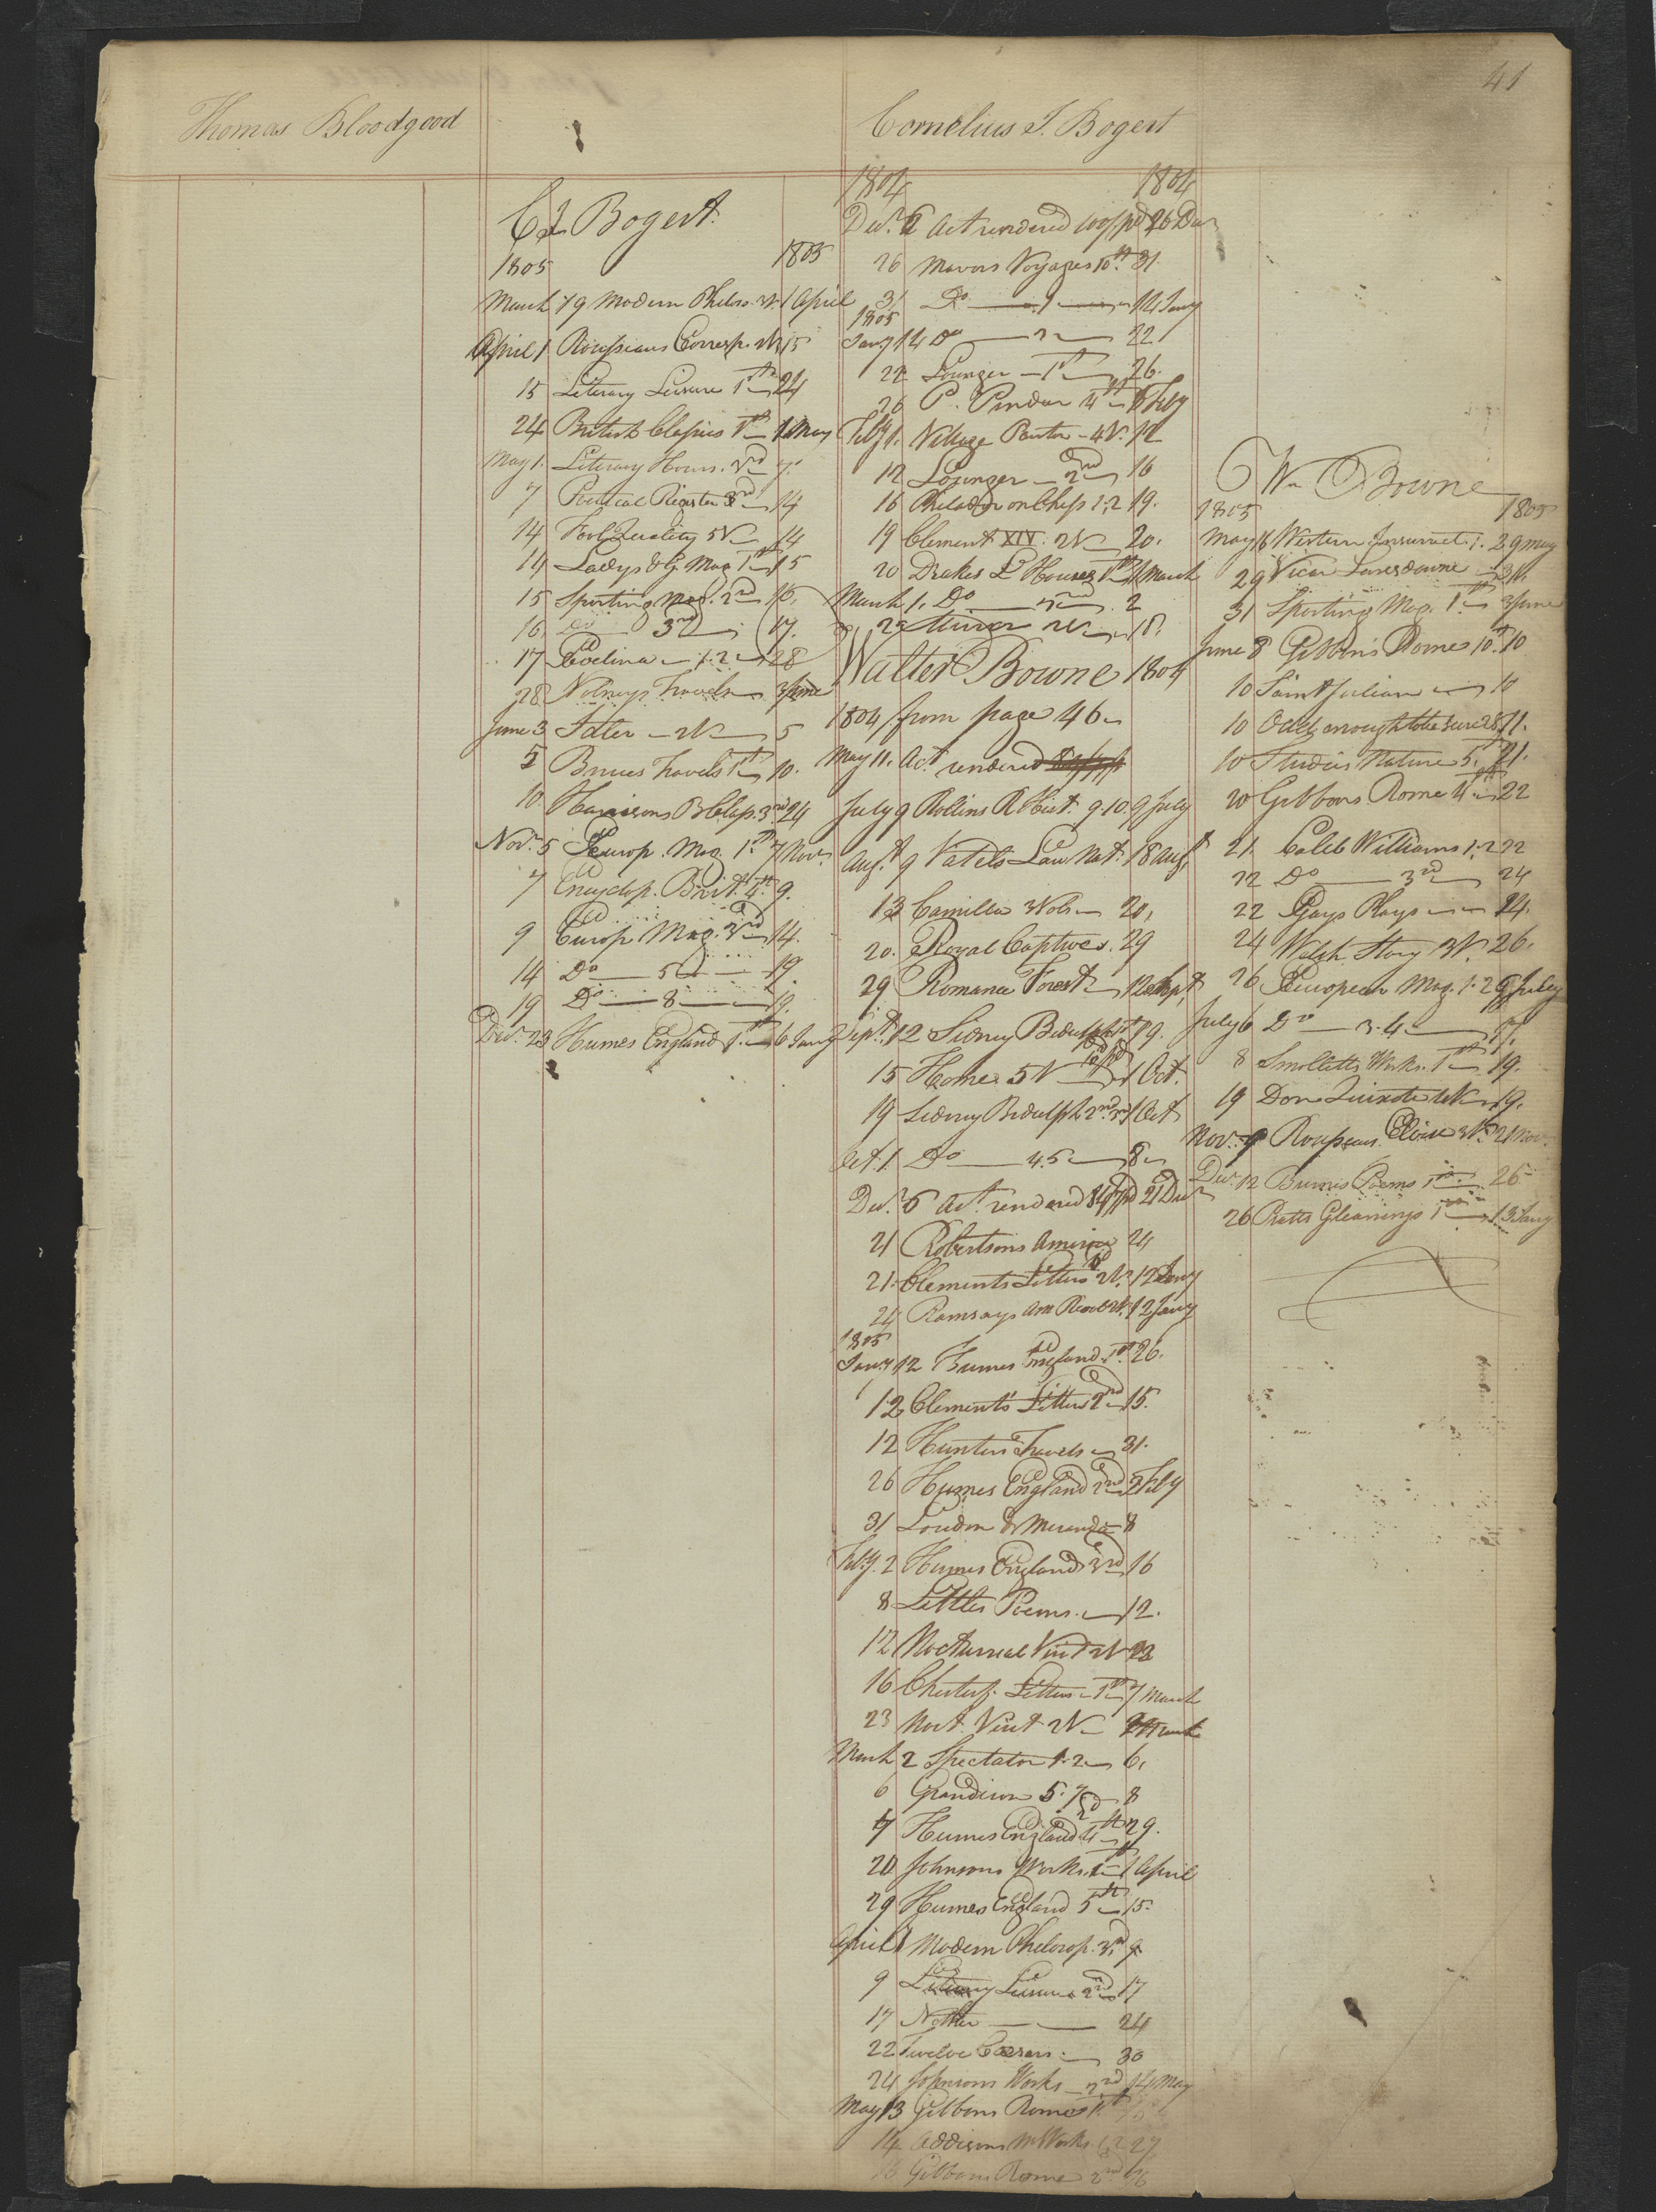 41
Thomas Bloodgood
Cornelius J. Bogert
C J Bogert
1805 1805
March 19 Modern Philoso. 2V. 1 April
April 1 Rousseaus Corresp. 2V 15
15 Literary Leisure 1st 24
24 British Classics 1st 1 May
May 1. Literary Hours. 3rd 7.
7 Poetical Register 3rd 14
14 Fool Quality 5V 14
14 Ladys & G Mag 1st 15
15 Sporting Mag. 2nd 16.
16 Do 3rd 17.
17 Evelina 1.2 28
28 Volneys Travels 3 June
June 3 Idler 2V 5
5 Bruces Travels 1st 10.
10 Harrisons B Class. 3rd 24
Novr. 5 Europ. Mag. 1st 7 Novr
7 Encyclop. Brit. 4th 9.
9 Europ Mag. 3rd 14.
14 Do 5 19
19 Do 8
Decr. 23 Humes England 1st 6 Jany
1804 1804
Decr. 6 Act rendered 26 Decr
26 Mavors Voyages 10th 31.
31 Do 1 14 Jany
1805
Jany 14 Do 2 22
22 Lounger 1st 26.
26 P. Pindar 4th Feby
Feby 1. Village Pastor 4V. 12
12 Lounger 2nd 16
16 Philador on Chess 1.2 19.
19 Clement XIV. 2V 20.
20 Drakes L Hours 1st 1 March
March 1. Do 2nd 2
2 2V 18.
Walter Bowne 1804
1804 from page 46
May 11. Act rendered
July 9 Rollins R Hist. 9.10. 9 July
Augt 9 Vatels Law Nat. 18 Augt
13 Camilla 3 Vols 20.
20. Royal Captives. 29
29 Romance Forest 12 Sept
Sept. 12 Sidney Bidulph 1st 19.
15 Homer 5V 1 Oct.
19 Sidney Bidulph 2nd 3rd 1 Oct
Oct. 1 Do 4.5 8
Decr. 6 Act. rendered 21 Decr
21 Robertsons America 24
21. Clements Letters 2V. 12 Jany
24 Ramsays Am Revol 2V. 12 Jany
1805
Jany 12 Humes England 1st 26.
12 Clement's Letters 2nd 15.
12 Hunters Travels 31.
26 Humes England 2nd 2 Feby
31 Loudon & Miranda 8
Feby. 2 Humes England 3rd 16
8 Littles Poems. 12.
12 Nocturnal Visit 2V 23
16 Chesterf. Letters 1st 7 March
23 Noct. Visit 2V March
March 2 Spectator 1.2 6.
6 Grandison 5.7 8
7 Humes England 4th 29.
20 Johnsons Works. 1st 1 April
29 Humes England 5th 15.
April 1 Modern Philosop. 3rd 9.
9 Literary Leisure 2nd 17
17 24
22 Twelve Caesars 30
24 Johnsons Works 2nd 14 May
May 13 Gibbons Rome 1st
14 Addisons Works 1.2 27
16 Gibbons Rome 2nd
Wm Bowne
1805 1805
May 16 Western Insurrect. 1. 29 May
29 Vicar Lansdowne 31.
31 Sporting Mag. 1st 3 June
June 8 Gibbons Rome 10th 10
10 Saint Julian 10
10 Odd enough to be sure 2V 11.
10 Studies Nature 5. 21.
20 Gibbons Rome 4th 22
21. Caleb Williams 1.2 22
22 Do 3rd 24
22 Gays Plays 24.
24 Welsh Story 3V. 26.
26 European Mag. 1.2 6 July
July 6 Do 3.4
8 Smolletts Works. 1st 19.
19 Don Quixote 4V 19.
Novr. 9 Rousseaus Eloise 3V. 21 Novr.
Decr. 12 Burns's Poems 1st 26
26 Pratts Gleanings 1st 13 Jany